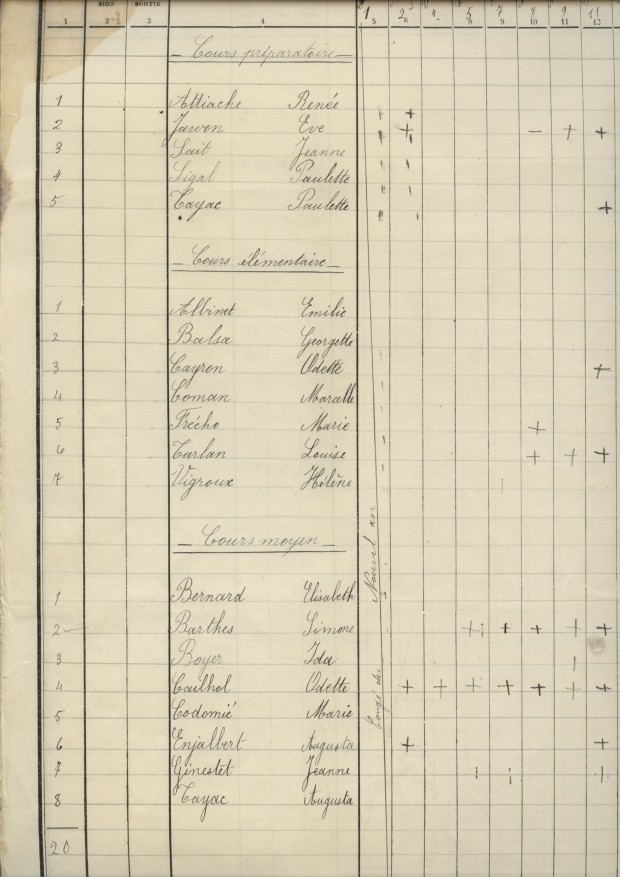 SION SORTIE
1 2 3 4 5 6 8 9 10 11 12
1 2 4 5 7 8 9 11
Cours préparatoire
1 Attiache Renée
2 Jawon Eve
3 Sait Jeanne
4 Sigal Paulette
5 Cayac Paulette
Cours élémentaire
1 Albinet Emilie
2 Balsa Georgette
3 Cayron Odette
4 Coman Marcelle
5 Frécho Marie
6 Turlan Louise
7 Vigroux Hélène
Cours moyen
1 Bernard Elisabeth
2 Barthes Simone
3 Boyer Ida
4 Cailhol Odette
5 Codomié Marie
6 Enjalbert Augusta
7 Ginestet Jeanne
8 Cayac Augusta
20
Congé du Nouvel an